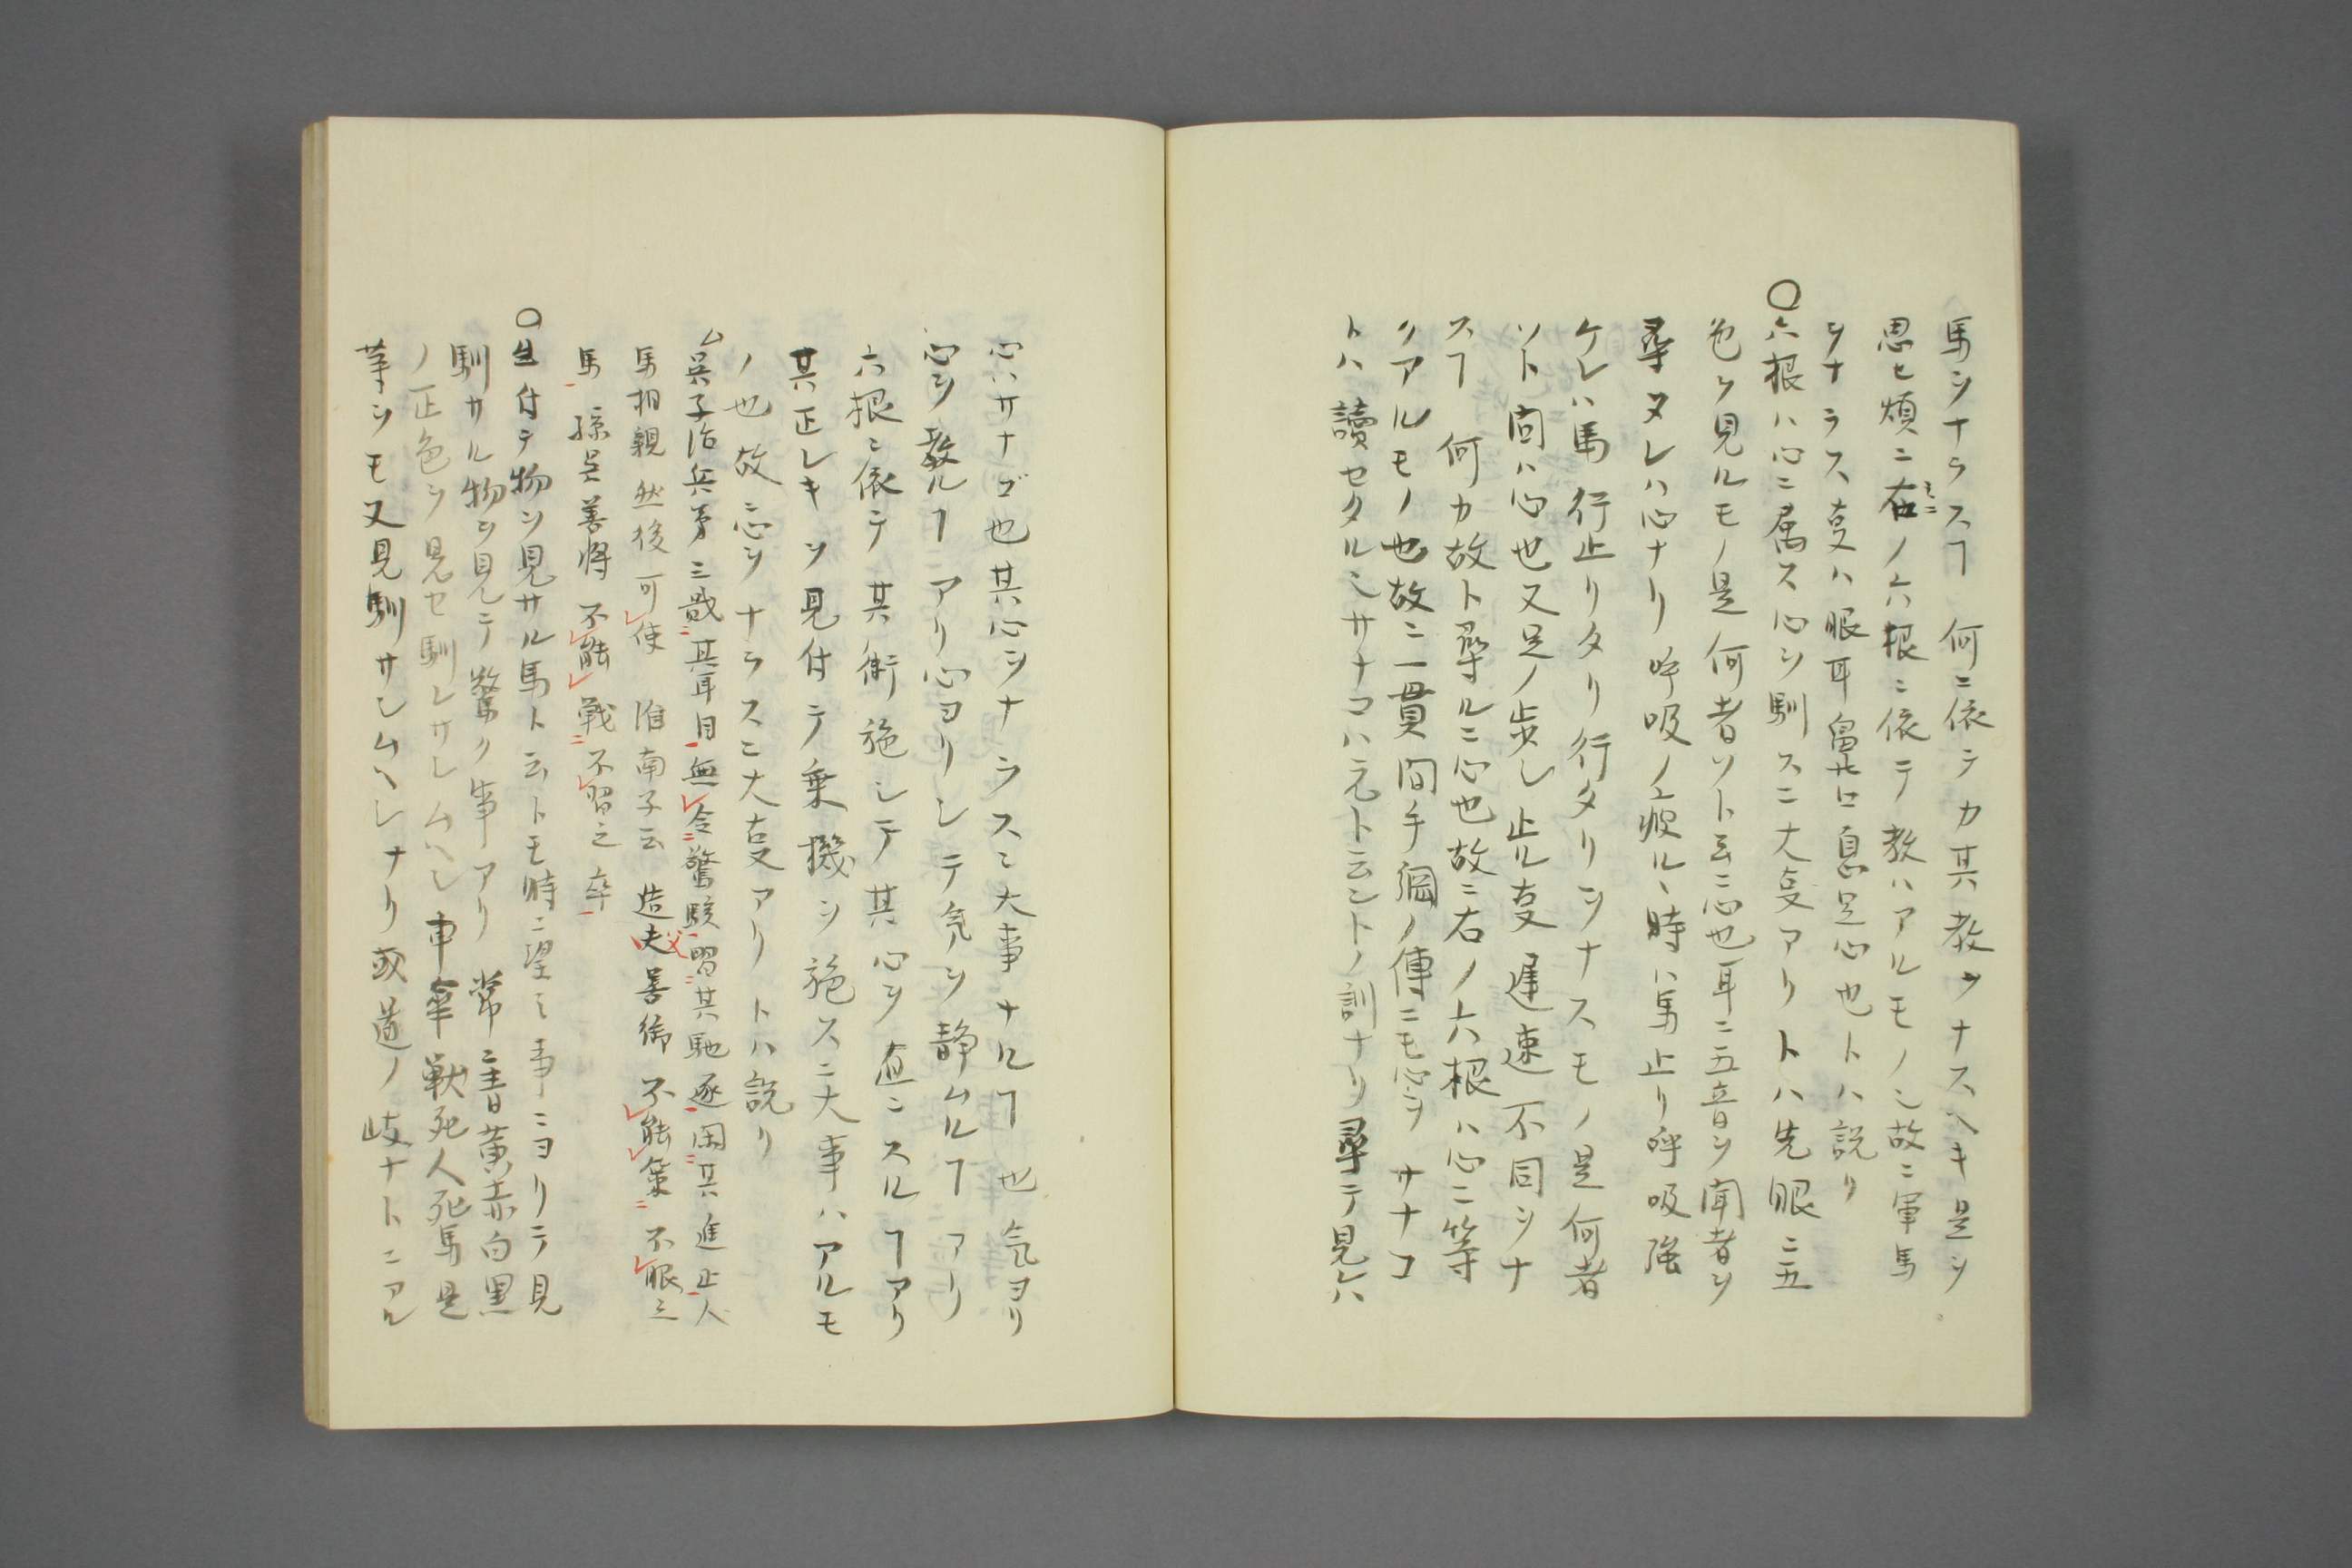 馬ヲナラスヿ 何ニ依テカ其教ヲナスヘキ是ヲ
思ヒ煩ニ在ノ六根ニ依テ教ハアルモノシ故ニ軍馬
ヲナラス㕝ハ眼耳鼻口息足心也トハ説リ
〇六根ハ心ニ属ス心ヲ馴スニ大㕝アリトハ先眼ニ五
色ヲ見ルモノ是何者ソト云ニ心也耳ニ五音ヲ聞者ヲ
尋ヌレハ心ナリ呼吸ノ疲ルヽ時ハ馬止リ呼吸強
ケレハ馬行止リタリ行タリヲナスモノ是何者
ソト問ハ心也又足ノ歩シ止ル㕝遅速不同ヲナ
スヿ 何カ故ト尋ルニ心也故ニ右ノ六根ハ心ニ等
リアルモノ也故ニ一貫間手綱ノ傳ニモ心ヲサナコ
トハ讀セタルシサナコハ元ト云シトノ訓ナリ尋テ見レハ
心ハサナゴ也其心ヲナラスヿ大事ナルヿ也気ヨリ
心ヲ教ルヿアリ心ヨリシテ気ヲ静ムルヿアリ
六根ニ依テ其術施シテ其心ヲ直ニスルヿアリ
其正シキヲ見付テ乗機ヲ施スニ大事ハアルモ
ノ也故ニ心ヲナラスニ大㕝アリトハ説リ
呉子治兵第三哉其耳目無令驚駭習其馳逐閑其進止人
馬相親然後可使 淮南子云 造父夫善御不能策不服之
馬 孫呉善将不能戦不習之卒
〇生付テ物ヲ見サル馬ト云トモ時ニ望ミ事ニヨリテ見
馴サル物ヲ見テ驚ク事アリ 常ニ青黄赤白黒
ノ正色ヲ見セ馴レサシムヘシ車傘戦死人死馬是
等ヲモ又見馴サシムヘシナリ或道ノ岐ナトニアル